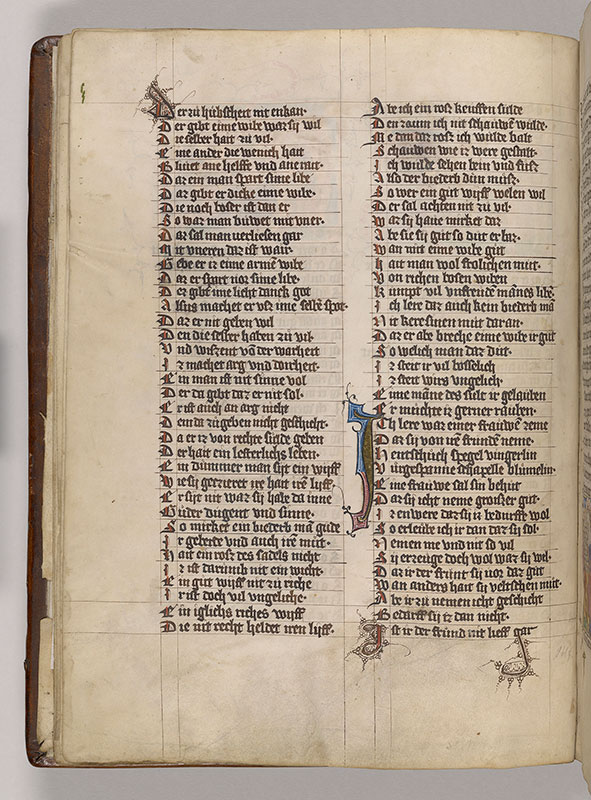 Der zu hubscheit nit enkan·
Der gibt eime wibe war sij wil
Die selber hait zu vil·
Eime ander die wenich hait
Bluiet ane helffe und ane rait·
Dar ein man spart sime libe
Dar gibt er dicke eime wibe·
Die noch boser ist dan er
So war man buwet mit vner·
Dar sal man verliesen gar
Mit vneren daz ist wair·
Gebe er iz eime armē wibe
Dar er spart vor sime libe·
Der gibt ime licht danck got
Alsus machet er vsz ime selbē spot·
Daz er nit geben wil
Den die selber haben zu vil·
Vnd wiszent vō der warheit
Ir machet arg vnd dorheit·
Ein man ist nit sinne vol
Der da gibt daz er nit sol·
Er ist auch an arg nicht
Dem da zu geben nicht geschicht·
Da er iz von rechte sulde geben
Der hait ein lesterlichs leben·
Ein dummer man siht ein wijff
Wie sij gezieret ire hait irē lijff·
Er siht nit war sij habe da inne
Guder dugent vnd sinne·
So mirket ein biederb mā gude
Ir geberde vnd auch irē mut·
Hait ein rosz des sadels nicht
Iz ist darumb nit ein wicht·
Ein gut wijff nit zu riche
Ir ist doch vil vngeliche·
Ein iglichs riches wijff
Die nit recht heldet iren lijff·
Abe ich ein rosz keuffen sulde
Den zaum ich nit schauwē wulde·
Me dan daz rosz ich wulde balt
Schauwen wie iz were gestalt·
Ich wulde sehen bein vnd fusz
Also der biederb dun musz·
So wer ein gut wijff wesen wil
Der sal achten nit zu vil·
War sij haue mirket daz
Abe sie sij gut so dut er baz·
Wan mit eime wibe gut
Hait man wol frolichen mut·
Von richen bosen wiben
Kumpt vil vnfreudē mānes libe·
Ich lere daz auch kein biederb mā
Nit kere sinen mut daran·
Daz er abe breche eime wibe ir gut
So welich man daz dut·
Iz steit ir vil boszlich
Iz steit wirs vngelich·
Eime māne des sulde ir gelauben
Er muchte iz gerner rauben·
Ich lere waz einer frauwē zeme
Daz sij von irē frundē neme·
Hentschuch spegel vingerlin
Vurgespanne schapelle blumelin·
Eine frauwe sal sin behut
Daz sij icht neme groiszer gut·
Iz enwere daz sij iz bedurffe wol
So erleube ich iz dan daz sij sol·
Nemen me vnd nit so vil
Sij erzeuge doch wol war sij wil·
Daz ir der frunt sij vor daz gut
Wan anders hait sij veltschen mut·
Abe ir zu nemen icht geschicht
Bedarff sij iz dan nicht·
Ist ir der frund nit lieff gar